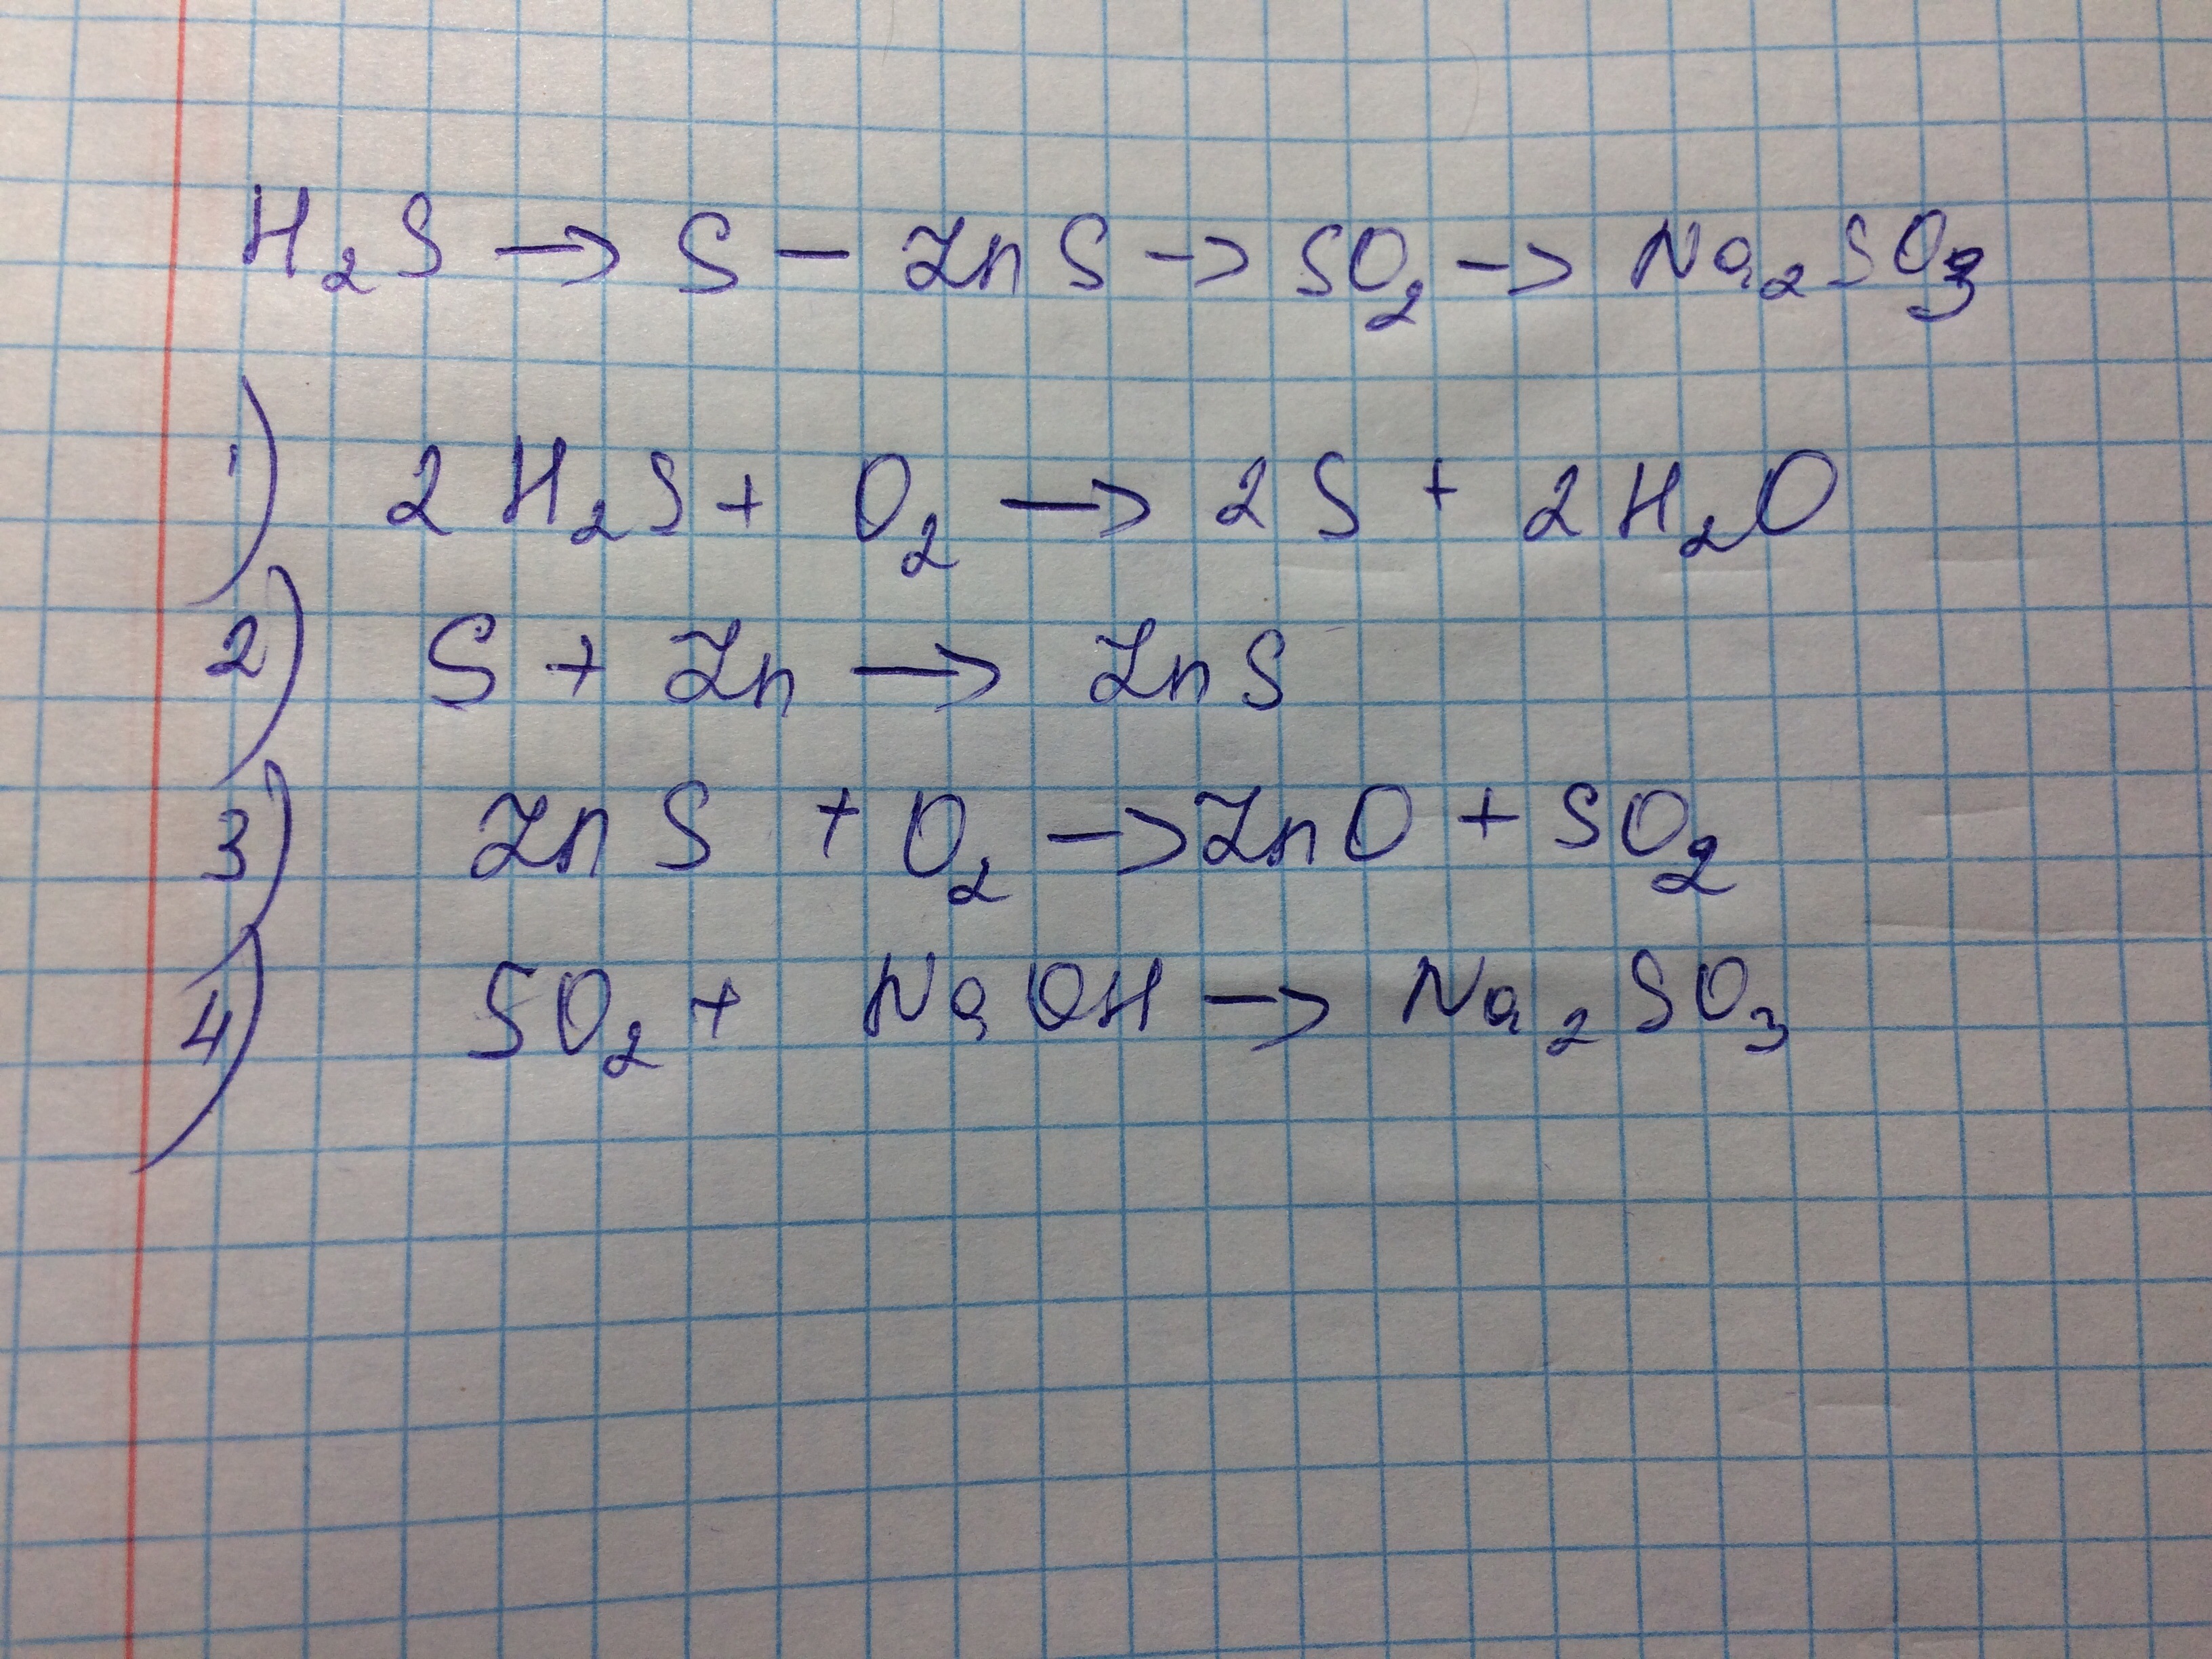 H₂S → S – ZnS → SO₂ → Na₂SO₃
1) 2H₂S + O₂ → 2S + 2H₂O
2) S + Zn → ZnS
3) ZnS + O₂ → ZnO + SO₂
4) SO₂ + NaOH → Na₂SO₃